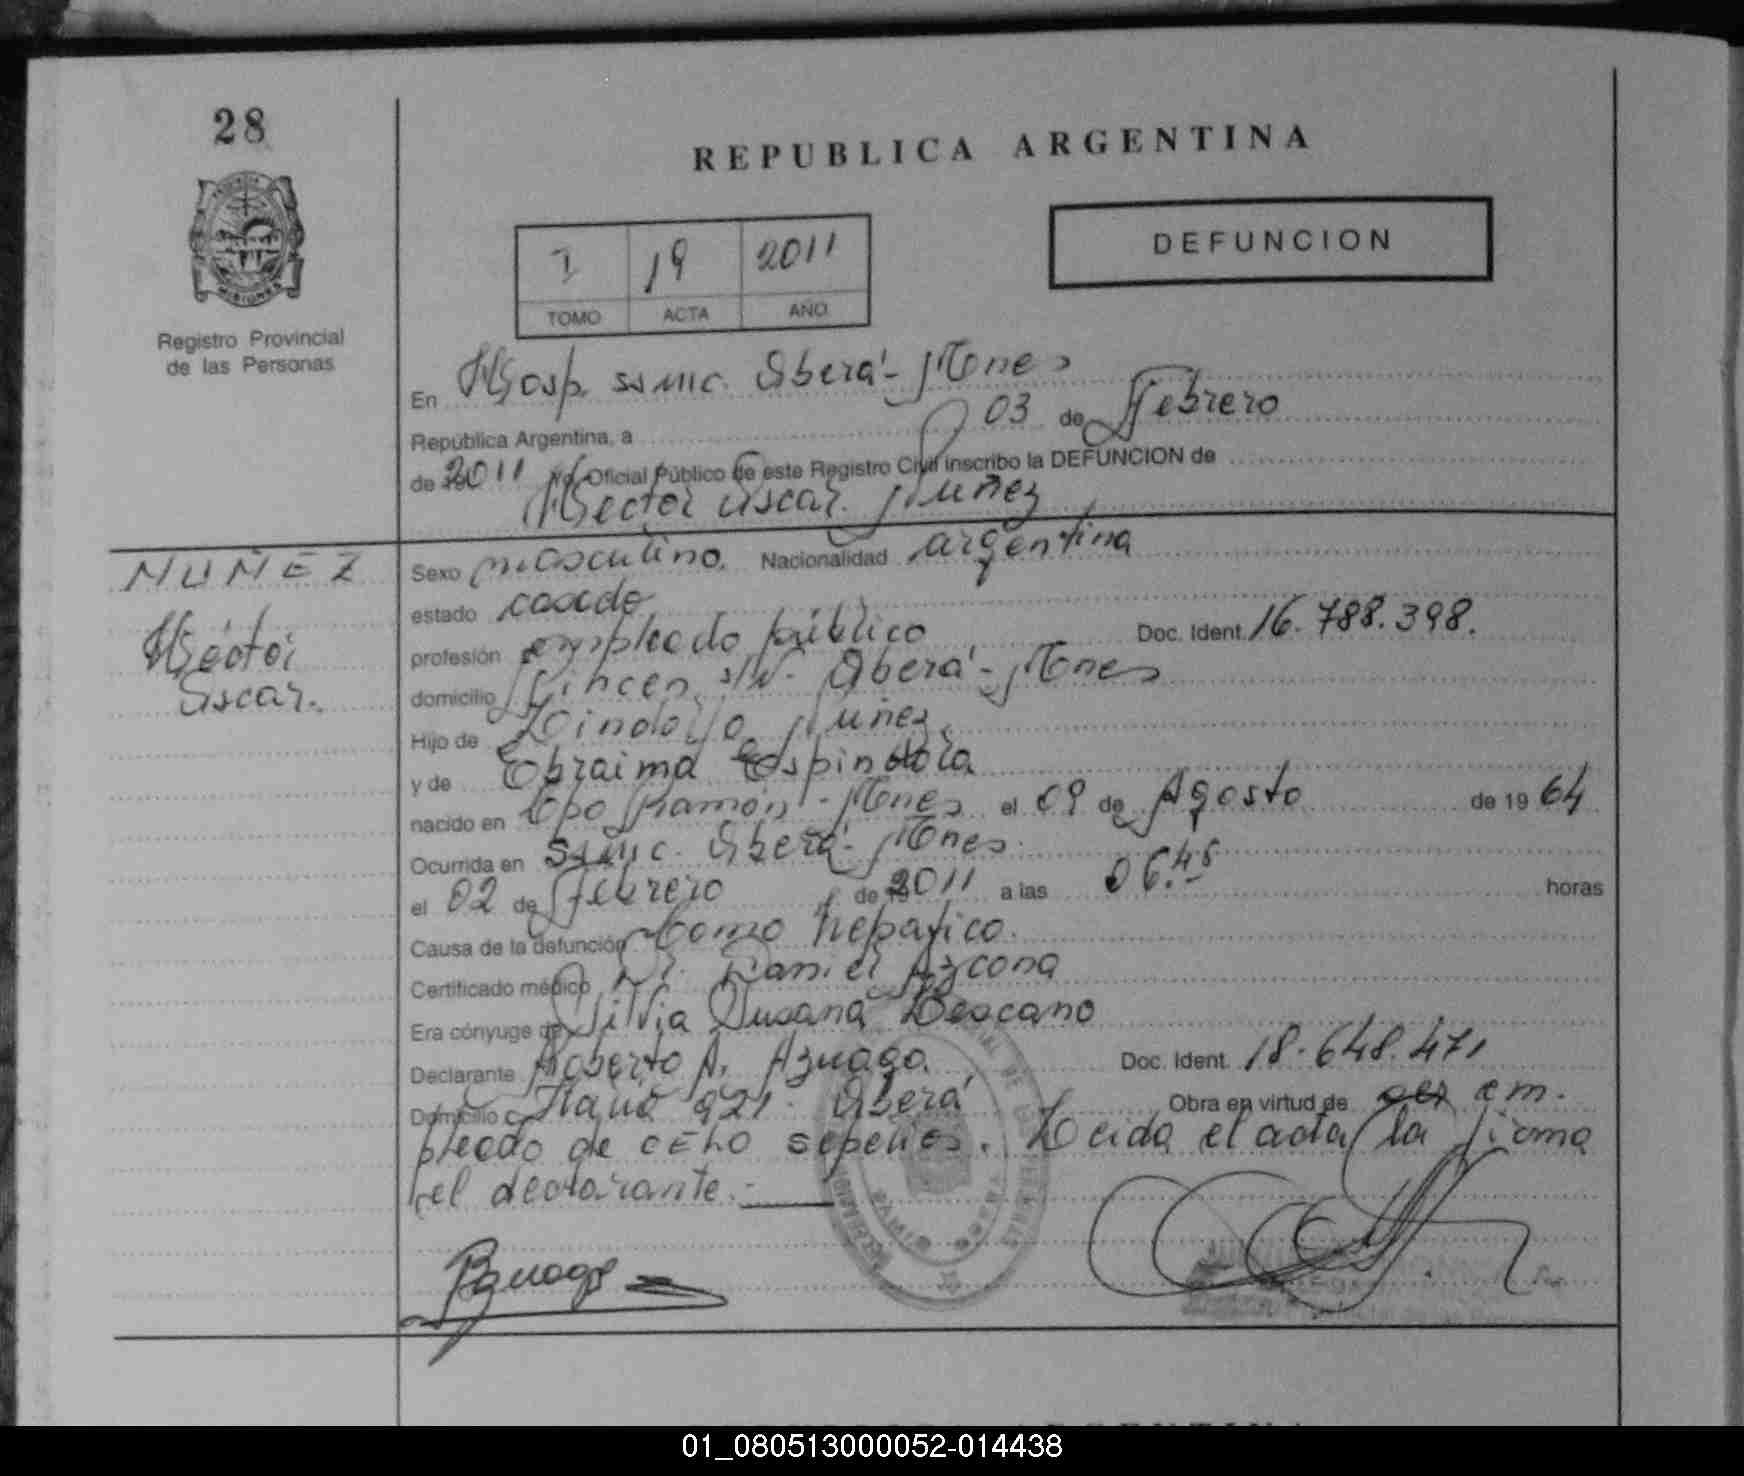 28
REPUBLICA ARGENTINA
MISIONES
Registro Provincial
de las Personas
I 19 2011
TOMO ACTA AÑO
DEFUNCION
En Hosp. ssmic. Oberá - Mnes
República Argentina, a 03 de Febrero
de 2011 Yo, Oficial Público de este Registro Civil inscribo la DEFUNCION de
Hector Oscar Nuñez
NUÑEZ
Héctor
Oscar.
Sexo masculino. Nacionalidad argentina
estado casado
profesión empleado público Doc. Ident. 16.788.398.
domicilio s/N. Oberá - Mnes
Hijo de Lindolfo Nuñez
y de Espindola
nacido en Cpo Ramón - Mnes el 09 de Agosto de 19 64
Ocurrida en ssmic. Oberá - Mnes.
el 02 de febrero de 2011 a las 06.45 horas
Causa de la defunción Coma hepatico.
Certificado médico Dr. Daniel Azcona
Era cónyuge de Silvia Susana
Declarante Roberto A. Azuaga. Doc. Ident. 18.648.471
Domicilio 921. Oberá Obra en virtud de em.
pleado de sepelios. Leida el acta la firma
el declarante.-
01_080513000052-014438